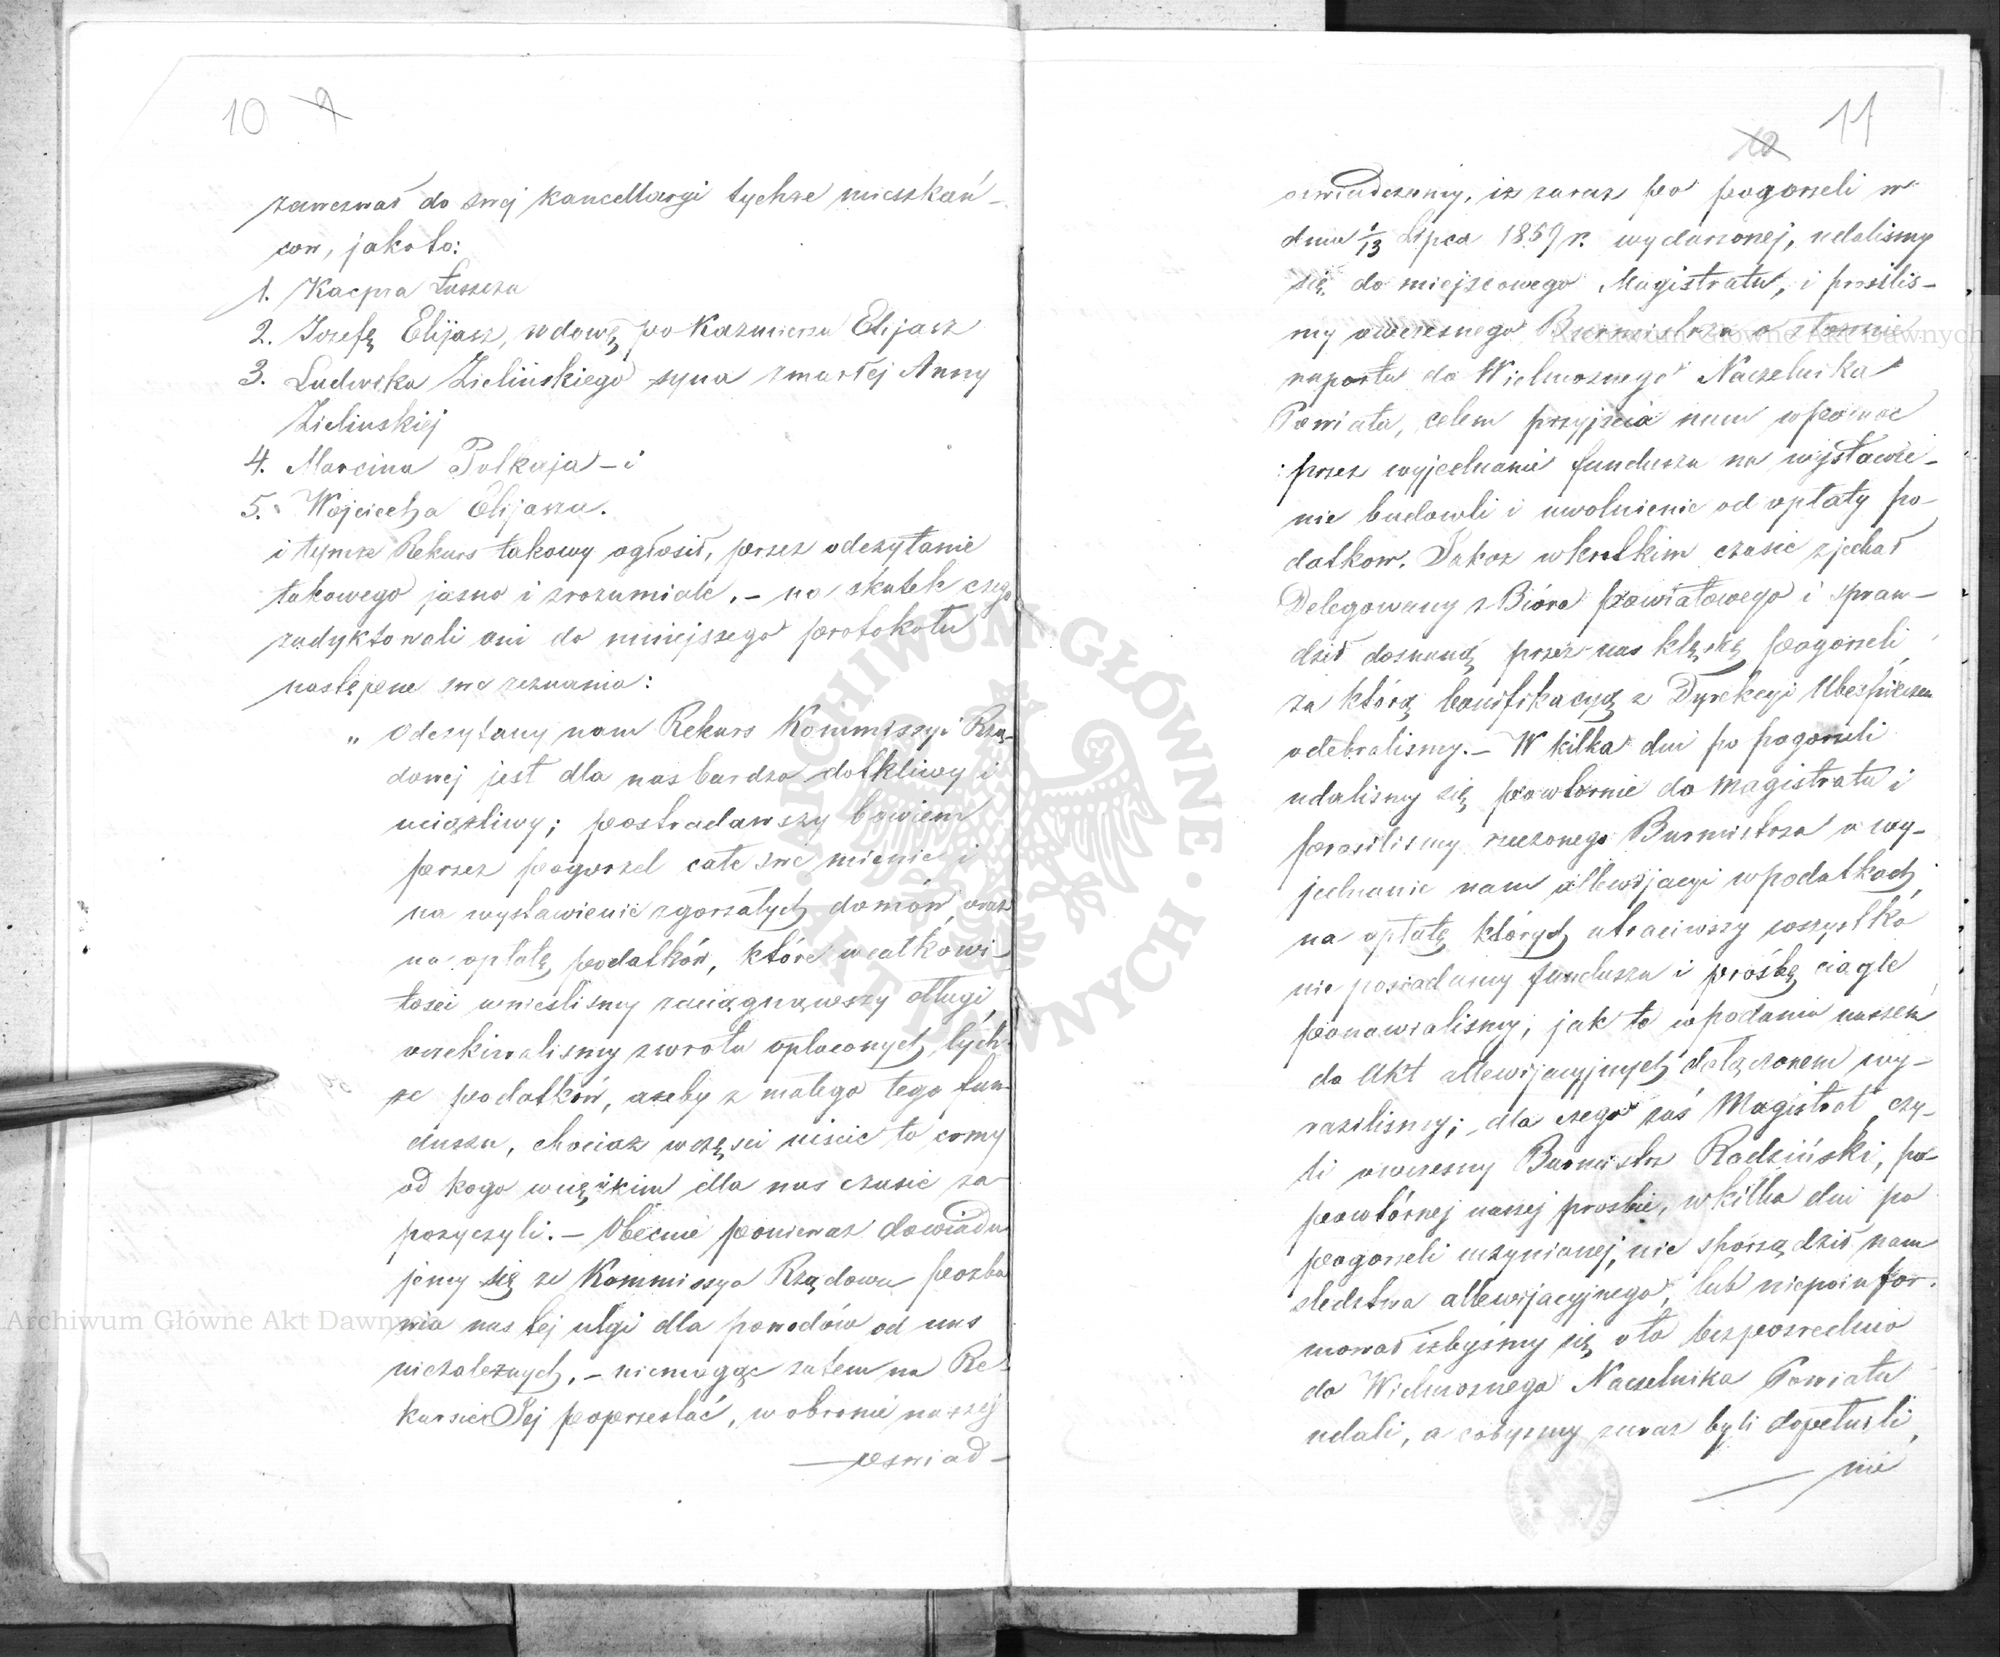 10 9
zawezwał do swej kancellaryi tychże mieszkań-
ców, jakoto:
1. Kacpra Łuszcza
2. Józefę Elijasz, wdowę po Kazmierzu Elijasz
3. Ludwika Zielińskiego syna zmarłej Anny
Zielińskiej
4. Marcina Polkaja - i
5. Wojciecha Elijasza.
i tymże Rekurs takowy ogłosił, przez odczytanie
takowego jasno i zrozumiale, - na skutek czego
zadyktowali oni do niniejszego protokołu
następne swe zeznania:
„ Odczytany nam Rekurs Kommissyi Rzą-
dowej jest dla nas bardzo dotkliwy i
uciążliwy; postradawszy bowiem
przez pogorzel całe swe mienie i
na wystawienie zgorzałych domów, oraz
na opłatę podatków, które w całkowi-
tości wnieślismy zaciągnąwszy długi,
oczekiwalismy zwrotu opłaconych tych-
że podatków, ażeby z małego tego fun-
duszu, chociaż w części uiścić to cośmy
od kogo w ciężkim dla nas czasie za-
pożyczyli. - Obecnie ponieważ dowiadu
jemy się że Kommissya Rządowa pozba
wia nas tej ulgi dla powodów od nas
niezależnych, - niemogąc zatem na Re-
kursie Jej poprzestać, w obronie naszej
oswiad-
10 11
oswiadczamy, iż zaraz po pogorzeli w
dniu 1/13 Lipca 1857 r. wydarzonej, udalismy
się do miejscowego Magistratu, i prosilis-
my owczesnego Burmistrza o złożenie
raportu do Wielmożnego Naczelnika
Powiatu, celem przyjścia nam w pomoc
przez wyjednanie funduszu na wystawie-
nie budowli i uwolnienie od opłaty po-
datkow. Jakoż w krotkim czasie zjechał
Delegowany z Bióra powiatowego i spraw-
dził doznaną przez nas klęskę pogorzeli,
za którą bonifikacyą z Dyrekcyi Ubezpieczeń
odebralismy. - W kilka dni po pogorzeli
udalismy się powtornie do Magistratu i
prosilismy rzeczonego Burmistrza o wy-
jednanie nam allewijacyi w podatkach,
na opłatę których utraciwszy wszystko
nie posiadamy funduszu i prośbę ciągle
ponawialismy, jak to w podaniu naszem
do Akt allewijacyjnych dołączonem wy-
razilismy; dla czego zaś Magistrat czy-
li owczesny Burmistrz Radziński, po
powtórnej naszej prosbie, w kilka dni po
pogorzeli uczynionej, nie sporządził nam
sledztwa allewijacyjnego, lub niepoinfor-
mował iżbyśmy się o to bezposrednio
do Wielmożnego Naczelnika Powiatu
udali, a cobysmy zaraz byli dopełnili,
nie
ARCHIWUM GŁÓWNE AKT DAWNYCH
Archiwum Główne Akt Dawnych
Archiwum Główne Akt Dawnych